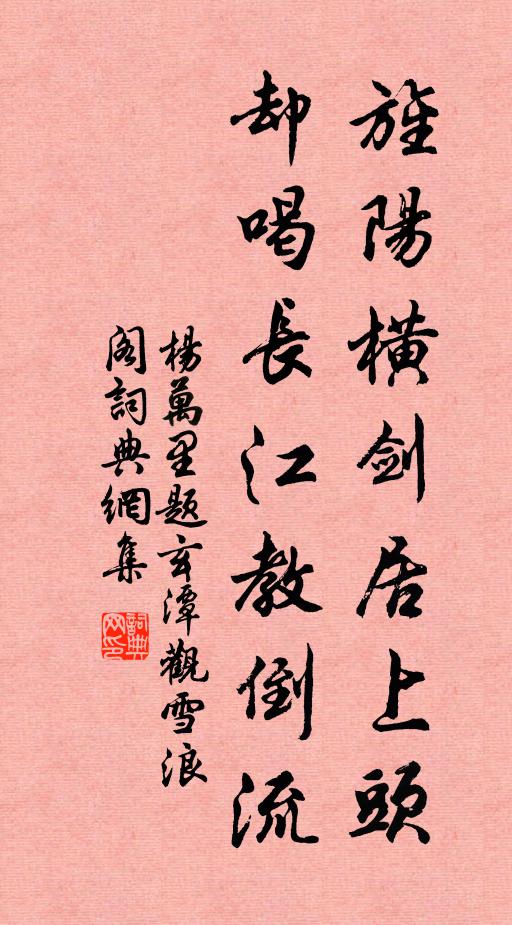 旌陽橫劍居上頭
却喝長江教倒流
楊萬里題玄潭觀雪浪
阁詞典網集
詞典
网印